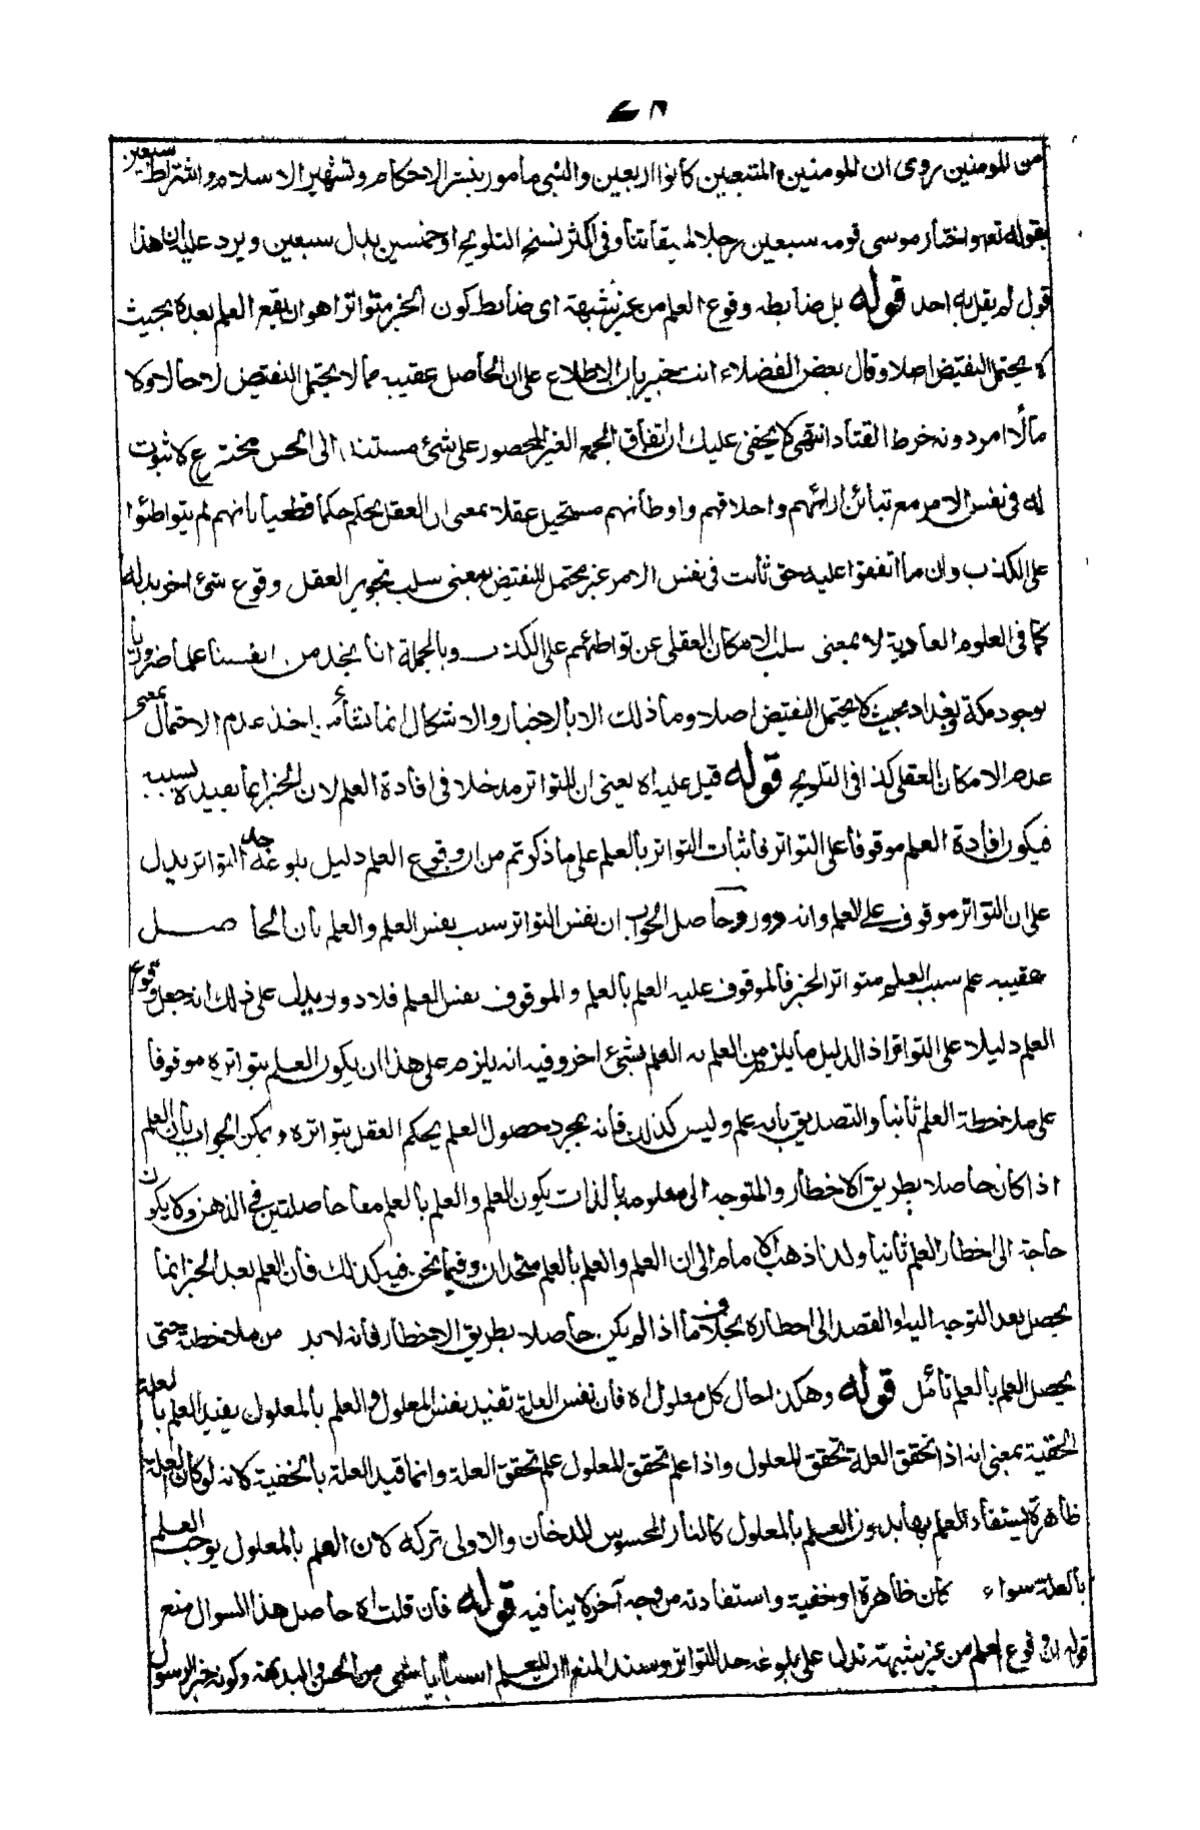 من المومنين روى ان المومنين المتبعين كانوا اربعين والنبى مامور بنشر الاحكام وتشهير الاسلام واشتراط سبعين
بقوله تعم واختار موسى قومه سبعين رجلا لميقاتنا وفى اكثر نسخ التلويح او خمسين بدل سبعين ويرد عليه ان هذا
قول لم يقل به احد قوله بل ضابطه وقوع العلم من غير شبهة اى ضابط كون الخبر متواترا هو ان يقع العلم بعده بحيث
لا يحتمل النقيض اصلا وقال بعض الفضلاء انت خبير بان الاطلاع على ان الحاصل عقيبه مما لا يحتمل النقيض لا حالا ولا
مآلا امر دونه خرط القتاد انتهى لا يخفى عليك ان اتفاق الجمع الغير المحصور على شئ مستند الى الحس مخترع لا ثبوت
له فى نفس الامر مع تبائن ارائهم واخلاقهم واوطانهم مستحيل عقلا بمعنى ان العقل يحكم حكما قطعيا بانهم لم يتواطئوا
على الكذب وان ما اتفقوا عليه حق ثابت فى نفس الامر غير محتمل للنقيض بمعنى سلب تجويز العقل وقوع شئ اخر بدله
كما فى العلوم العادية لا بمعنى سلب الامكان العقلى عن تواطئهم على الكذب وبالجملة انا نجد من انفسنا علما ضروريا
بوجود مكة وبغداد بحيث لا يحتمل النقيض اصلا وما ذلك الا بالاخبار والاشكال انما نشأ من اخذ عدم الاحتمال بمعنى
عدم الامكان العقلى كذا فى التلويح قوله قيل عليه اه يعنى ان للتواتر مدخلا فى افادة العلم لان الخبر انما يفيده بسبب
فيكون افادة العلم موقوفا على التواتر فاثبات التواتر بالعلم على ما ذكرتم من ان وقوع العلم دليل بلوغه حد التواتر يدل
على ان التواتر موقوف على العلم وانه دور وحاصل الجواب ان نفس التواتر سبب نفس العلم والعلم بان الحاصل
عقيبه علم سبب العلم متواتر الخبر فالموقوف عليه العلم بالعلم والموقوف نفس العلم فلا دور يدل على ذلك انه جعل وقوع
العلم دليلا على التواتر اذ الدليل ما يلزم من العلم به العلم بشئ اخر وفيه انه يلزم على هذا ان يكون العلم بتواتره موقوفا
على ملاحظة العلم ثانيا والتصديق بانه علم وليس كذلك فانه بمجرد حصول العلم يحكم العقل بتواتره ويمكن الجواب بان العلم
اذا كان حاصلا بطريق الاخطار والتوجه الى معلومه بالذات يكون العلم والعلم بالعلم معا حاصلتين فى الذهن ولا يكون
حاجة الى اخطار العلم ثانيا ولذا ذهب الامام الى ان العلم والعلم بالعلم متحدان وفيما نحن فيه كذلك فان العلم بعد الخبر انما
يحصل بعد التوجه اليه والقصد الى احضاره بخلاف ما اذا لم يكن حاصلا بطريق الاخطار فانه لا بد من ملاحظة حتى
يحصل العلم بالعلم تأمل قوله وهكذا حال كل معلول اه فان نفس العلة تفيد نفس المعلول والعلم بالمعلول يفيد العلم بالعلة
الخفية بمعنى انه اذا تحقق العلة تحقق المعلول واذا علم تحقق المعلول علم تحقق العلة وانما قيد العلة بالخفية لانه لو كان العلة
ظاهرة يستفاد العلم بها بدون العلم بالمعلول كالنار المحسوس للدخان والاولى تركه لان العلم بالمعلول يوجب العلم
بالعلة سواء كان ظاهرة او خفية واستفادته من وجه آخر لا ينافيه قوله فان قلت اه حاصل هذا السوال منع
قوله ان وقوع العلم من غير شبهة تدل على بلوغه حد التواتر وسند المنع ان للعلم اسبابا شتى من الحس والبديهة وكونه خبر الرسول